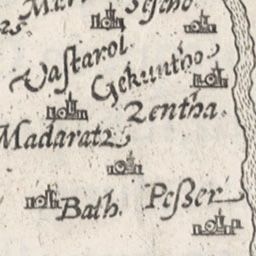 Vaſtarol
Gekuntho
Zentha
Madaratz
Bath.
Peßer